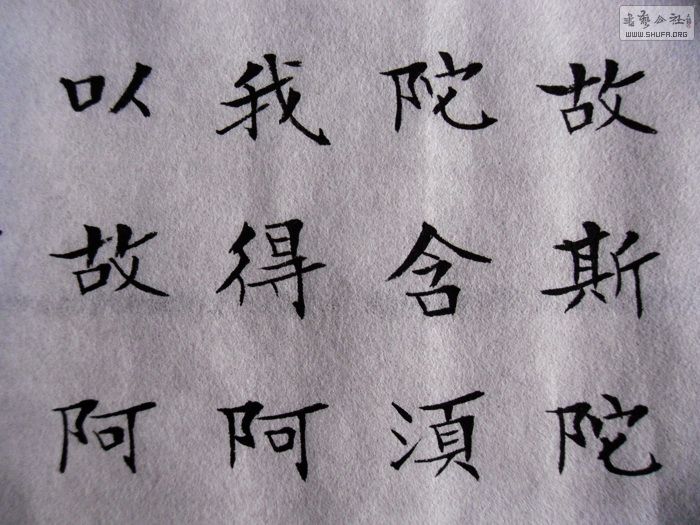 故斯陀
陀含湏
我得阿
以故阿
書藝公社
WWW.SHUFA.ORG